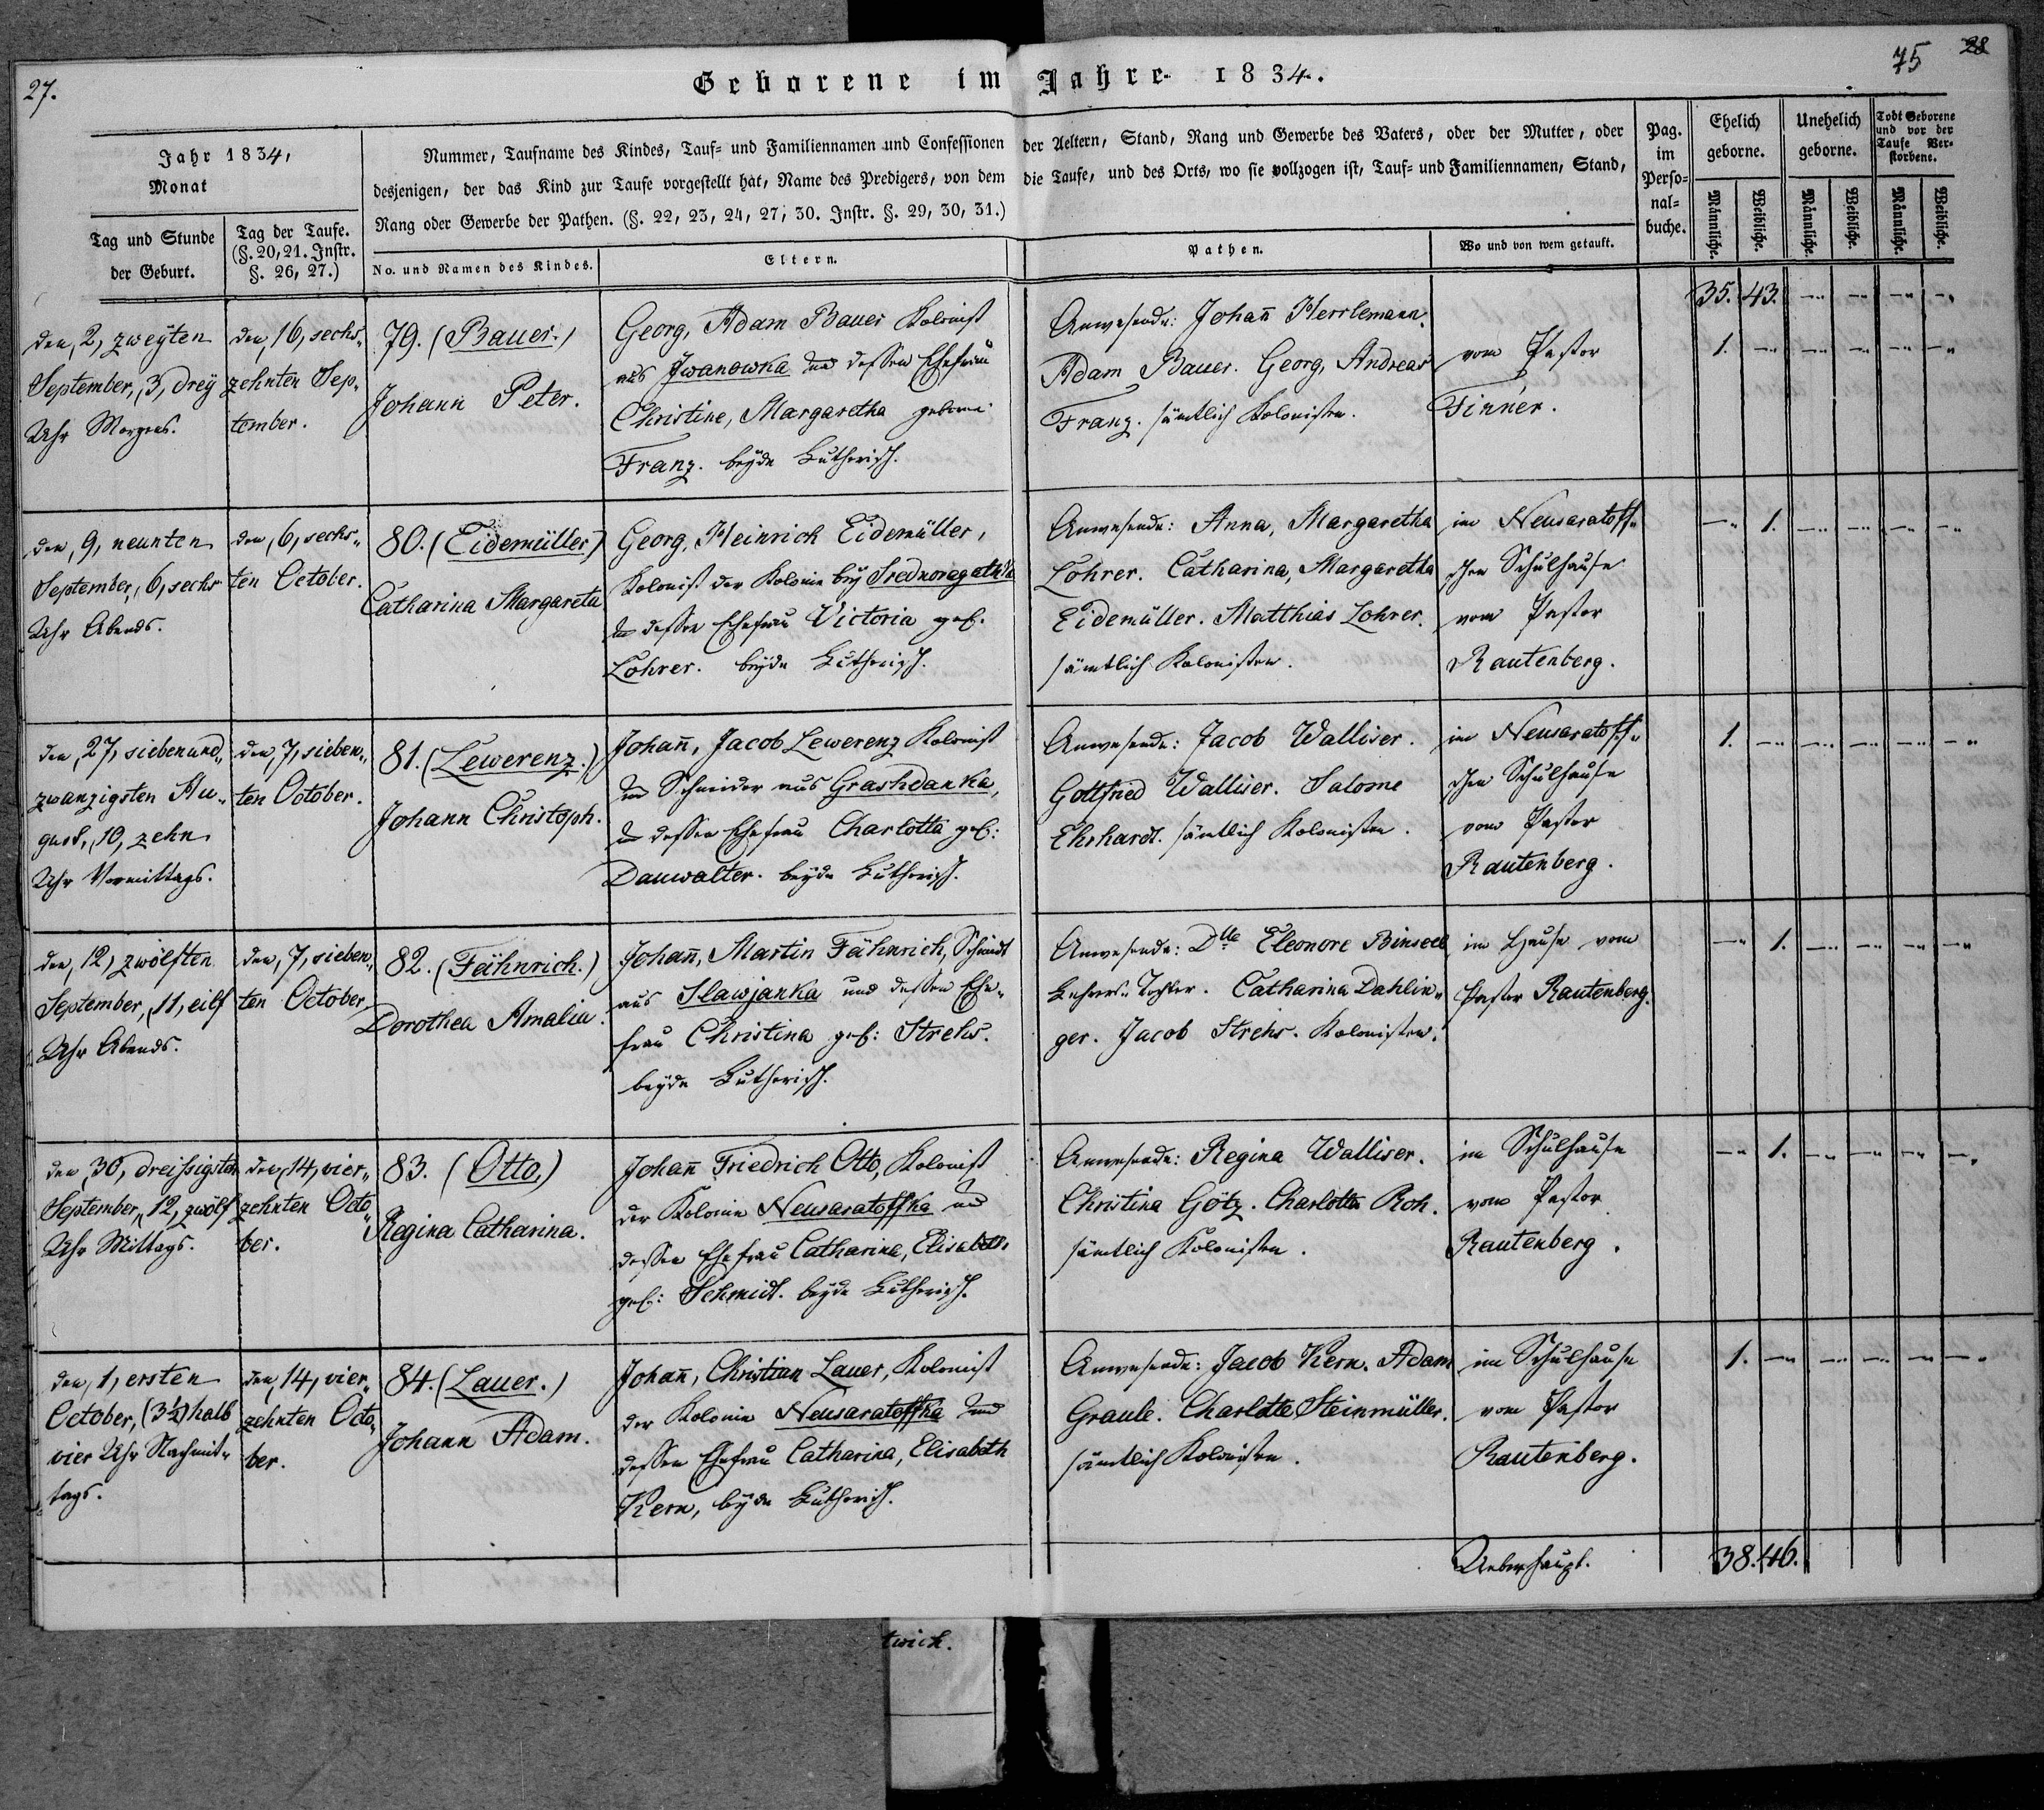 27.
Geborene im Jahre 1834.
75 28
Jahr 1834,
Monat
Tag und Stunde
der Geburt.
Tag der Taufe.
(§. 20, 21. Instr.
§. 26, 27.)
Nummer, Taufname des Kindes, Tauf- und Familiennamen und Confessionen der Aeltern, Stand, Rang und Gewerbe des Vaters, oder der Mutter, oder
desjenigen, der das Kind zur Taufe vorgestellt hat, Name des Predigers, von dem die Taufe, und des Orts, wo sie vollzogen ist, Tauf- und Familiennamen, Stand,
Rang oder Gewerbe der Pathen. (§. 22, 23, 24, 27, 30. Instr. §. 29, 30, 31.)
No. und Namen des Kindes.
Eltern.
Pathen.
Wo und von wem getauft.
Pag.
im
Perso-
nal-
buche.
Ehelich
geborne.
Unehelich
geborne.
Todt Geborene
und vor der
Taufe Ver-
storbene.
Männliche.
Weibliche.
Männliche.
Weibliche.
Männliche.
Weibliche.
35. 43. —" —" —" —"
den, 2, zweyten
September, (3, drey
Uhr Morgens.
den, 16, sechs„
zehnten Sep„
tember.
79. (Bauer.)
Johann Peter.
Georg, Adam Bauer Kolonist
aus Iwanowka und dessen Ehefrau
Christine, Margaretha geborne
Franz. beyde Lutherisch.
Anwesende: Johañ Herrlemann.
Adam Bauer. Georg, Andreas
Franz. sämtlich Kolonisten.
vom Pastor
Finner.
1. —" —" —" —" —"
den, 9, neunten
September, (6, sechs
Uhr Abends.
den, 6, sechs„
ten October.
80. (Eidemüller)
Catharina Margareta
Georg, Heinrich Eidemüller,
Kolonist der Kolonie bey
& dessen Ehefrau Victoria geb.
Lohrer. beyde Lutherisch.
Anwesende: Anna, Margaretha
Lohrer. Catharina, Margaretha
Eidemüller. Matthias Lohrer.
sämtlich Kolonisten.
im Neusaratoff„
schen Schulhause
vom Pastor
Rautenberg.
—" 1. —" —" —" —"
den, 27, siebenund„
zwanzigsten Au„
gust, (10, zehn
Uhr Vormittags.
den, 7, sieben„
ten October.
81. (Lewerenz.)
Johann Christoph.
Johañ, Jacob Lewerenz Kolonist
und Schneider aus Grashdanka,
& dessen Ehefrau Charlotta geb:
Dauwalter. beyde Lutherisch.
Anwesende: Jacob Walliser.
Gottfried Walliser. Salome
Ehrhardt. sämtlich Kolonisten.
im Neusaratoff„
schen Schulhause
vom Pastor
Rautenberg.
1. —" —" —" —" —"
den, 12, zwölften
September, (11, eilf
Uhr Abends.
den, 7, sieben„
ten October,
82. (Fähnrich.)
Dorothea Amalia.
Johañ, Martin Fähnrich, Schmidt
aus Slawjanka und dessen Ehe„
frau Christina geb: Strehs.
beyde Lutherisch.
Anwesende: Dlle Eleonore Binseel
Lehrers„ Tochter. Catharina Dahlin„
ger. Jacob Strehs. Kolonisten.
im Hause vom
Pastor Rautenberg.
—" 1. —" —" —" —"
den, 30, dreissigsten
September, 12, zwölf
Uhr Mittags.
den, 14, vier„
zehnten Octo„
ber.
83. (Otto.)
Regina Catharina.
Johañ Friedrich Otto, Kolonist
der Kolonie Neusaratoffka und
dessen Ehefrau Catharina, Elisabeth
geb: Schmidt. beyde Lutherisch.
Anwesende: Regina Walliser.
Christina Götz. Charlotta Roh.
sämtlich Kolonisten.
im Schulhause
vom Pastor
Rautenberg.
—" 1. —" —" —" —"
den, 1, ersten
October, (3½) halb
vier Uhr Nachmit„
tags.
den, 14, vier„
zehnten Octo„
ber.
84. (Lauer.)
Johann Adam.
Johañ, Christian Lauer, Kolonist
der Kolonie Neusaratoffka und
dessen Ehefrau Catharina, Elisabeth
Kern, beyde Lutherisch.
Anwesende: Jacob Kern. Adam
Graule. Charlotte Steinmüller.
sämtlich Kolonisten.
im Schulhause
vom Pastor
Rautenberg.
1. —" —" —" —" —"
Ueberhaupt. 38. 46.
twich.